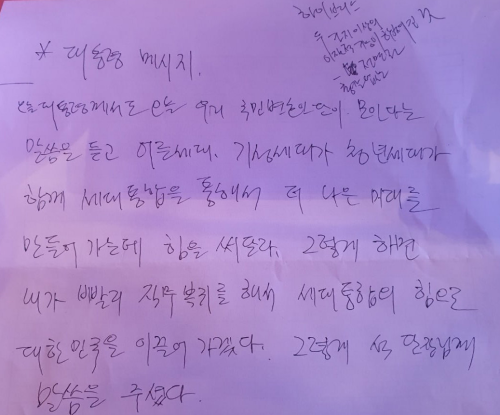 * 대통령 메시지.
오늘 대통령께서도 오늘 우리 국민변호인단이 모인다는
말씀을 듣고 어른세대, 기성세대가 청년세대가
함께 세대통합을 통해서 더 나은 미래를
만들어 가는데 힘을 써달라. 그렇게 하면
내가 빨리 직무복귀를 해서 세대통합의 힘으로
대한민국을 이끌어 가겠다. 그렇게 석 단장님께
말씀을 주셨다.